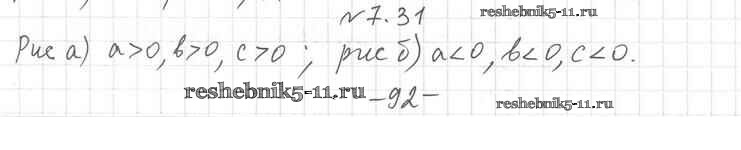 №7.31 reshebnik5-11.ru
Рис а) a>0, в>0, c>0 ; рис б) a<0, в<0, c<0.
reshebnik5-11.ru -92- reshebnik5-11.ru